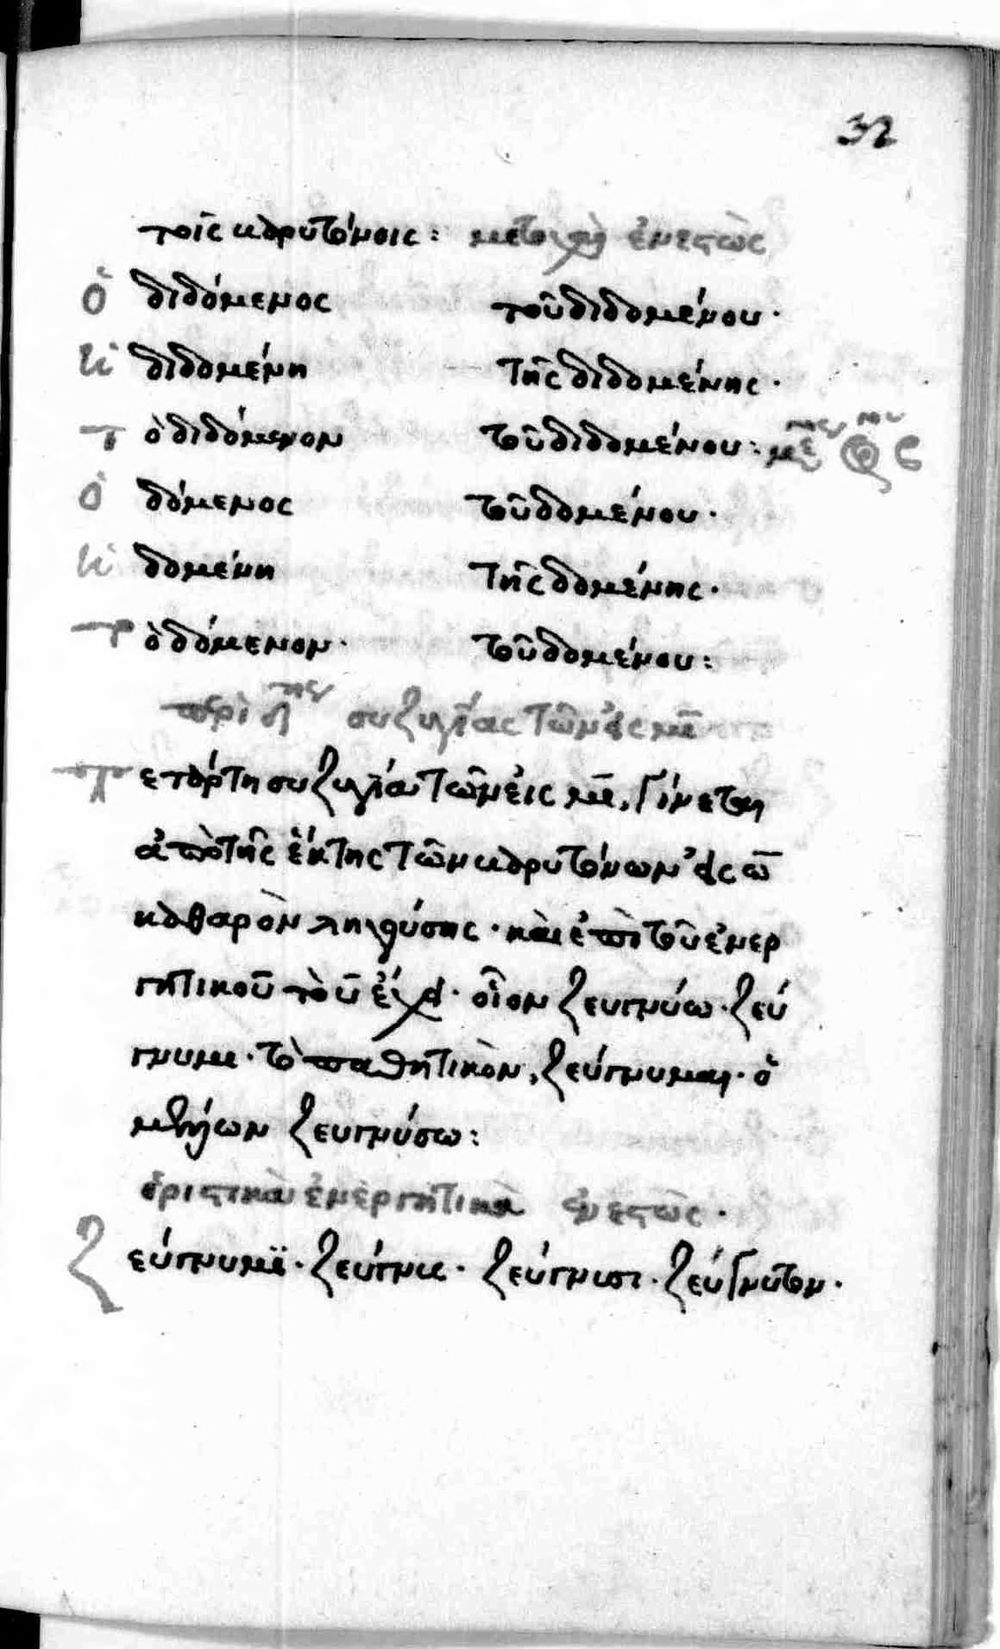 32
τοῖς βαρυτόνοις: μετοχὴ ἐνεστὼς
ὁ διδόμενος τοῦ διδομένου·
ἡ διδομένη τῆς διδομένης·
τὸ διδόμενον τοῦ διδομένου:
ὁ δόμενος τοῦ δομένου·
ἡ δομένη τῆς δομένης·
τὸ δόμενον· τοῦ δομένου:
περὶ συζυγίας τῶν εἰς μι
τετάρτη συζυγία τῶν εἰς μι, γίνεται
ἀπὸ τῆς ἕκτης τῶν βαρυτόνων εἰς ω
καθαρὸν ληγούσης· καὶ ἐπὶ τοῦ ἐνερ
γητικοῦ τὸ υ ἔχει· οἷον ζευγνύω· ζεύ
γνυμι· τὸ παθητικὸν, ζεύγνυμαι· ὁ
μέλλων ζευγνύσω:
ὁριστικὰ ἐνεργητικὰ ἐνεστὼς·
ζεύγνυμϊ· ζεύγνυς· ζεύγνυσι· ζεύγνυτον·